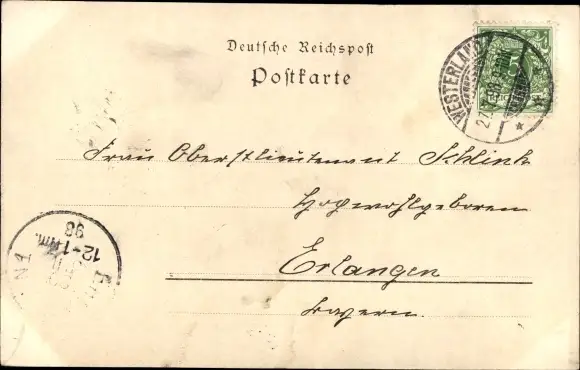 Deutsche Reichspost
Postkarte
WESTERLAND
Frau Oberstlieutenant Schlink
Hochwohlgeboren
Erlangen
Bayern.
12-1 Nm.
98